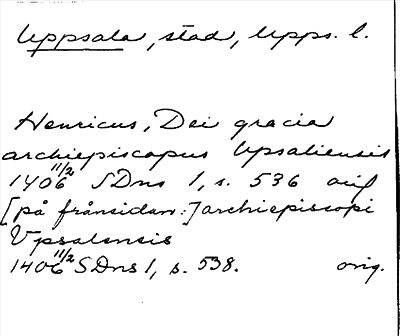 Uppsala, stad, Upps. l.
Henricus, Dei gracia
archiepiscopus Upsaliensis
1406 11/2 SDns 1, s. 536 orig
[på frånsidan:] archiepiscopi
Vpsalensis
1406 11/2 SDns 1, s. 538. orig.